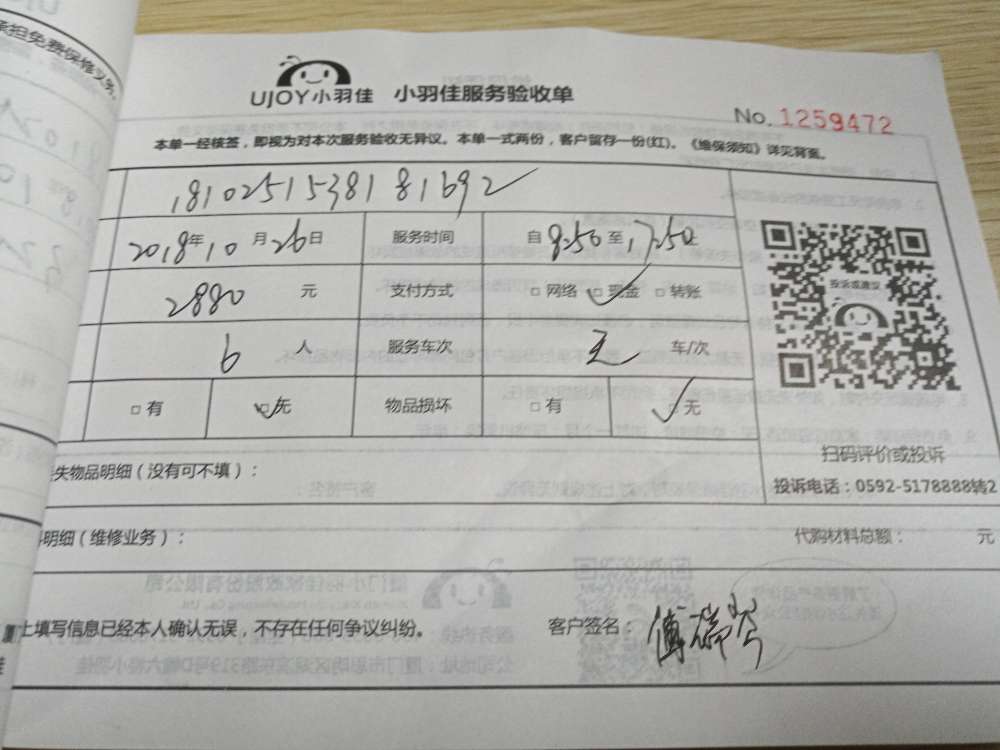 承担免费保修义务。
UJOY小羽佳 小羽佳服务验收单
No. 1259472
本单一经核签，即视为对本次服务验收无异议。本单一式两份，客户留存一份(红)。《维保须知》详见背面。
18102515381 81692
2018年10月26日 服务时间 自8:50至17:50止
2880 元 支付方式 □网络 ☑现金 □转账
6 人 服务车次 车/次
□有 ☑无 物品损坏 □有 ☑无
投诉或建议
扫码评价或投诉
失物品明细（没有可不填）： 投诉电话：0592-5178888转2
明细（维修业务）： 代购材料总额： 元
上填写信息已经本人确认无误，不存在任何争议纠纷。 客户签名：傅瑞芩